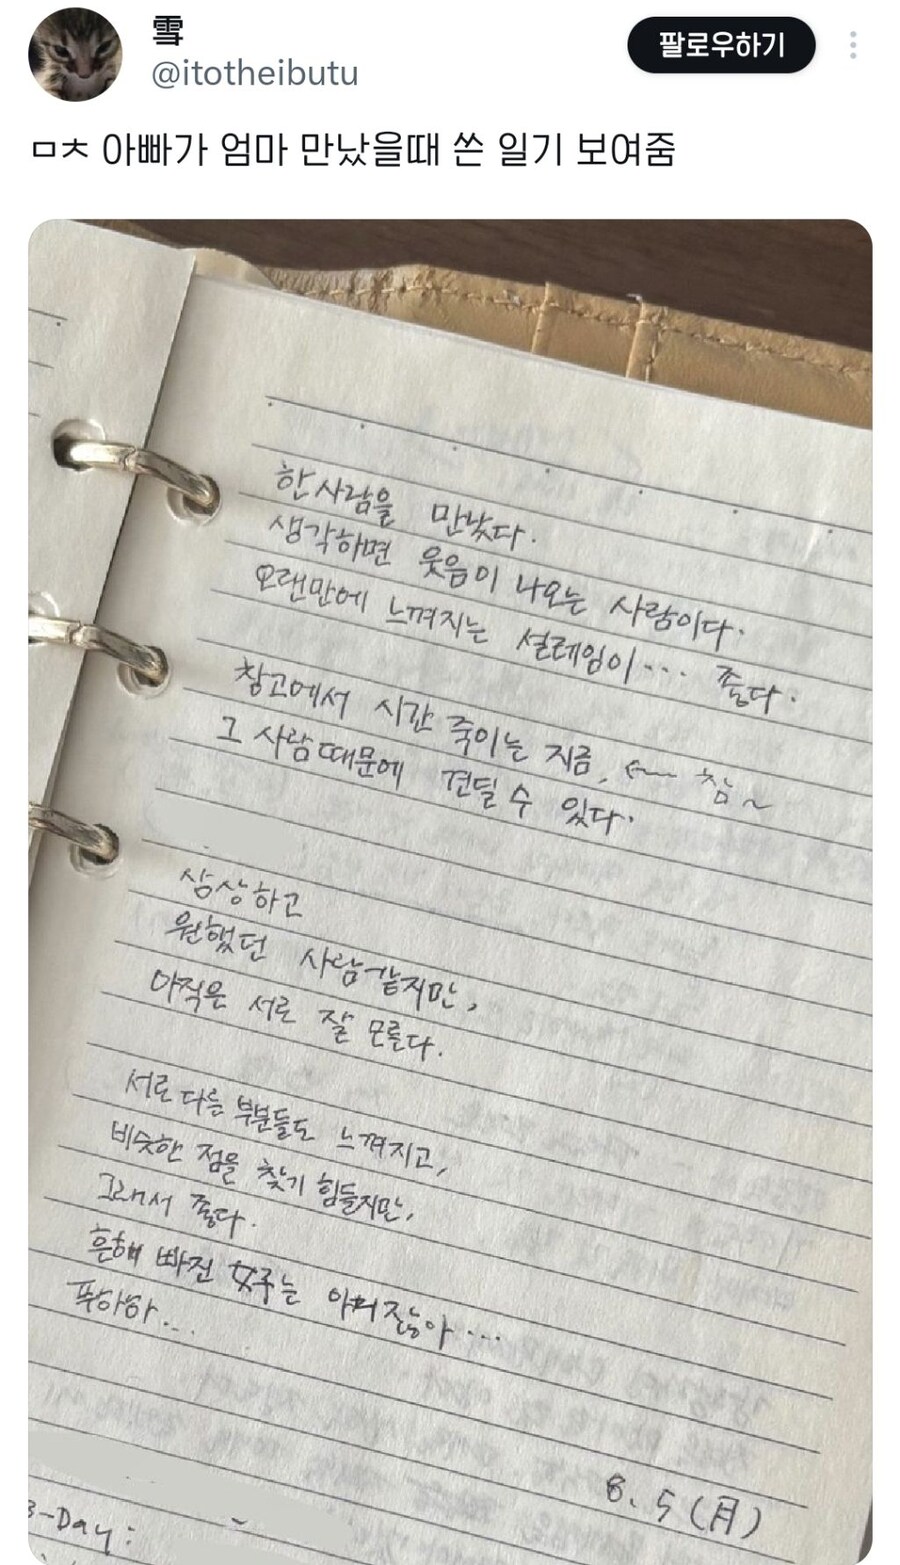 雪
@itotheibutu
팔로우하기
ㅁㅊ 아빠가 엄마 만났을때 쓴 일기 보여줌
한 사람을 만났다.
생각하면 웃음이 나오는 사람이다.
오랜만에 느껴지는 설레임이... 좋다.
창고에서 시간 죽이는 지금, ← 참~
그 사람때문에 견딜 수 있다.
상상하고
원했던 사람같지만,
아직은 서로 잘 모른다.
서로 다른 부분들도 느껴지고,
비슷한 점을 찾기 힘들지만,
그래서 좋다.
흔해 빠진 女주는 아니잖아...
푸하하...
8. 5 (月)
B-Day: